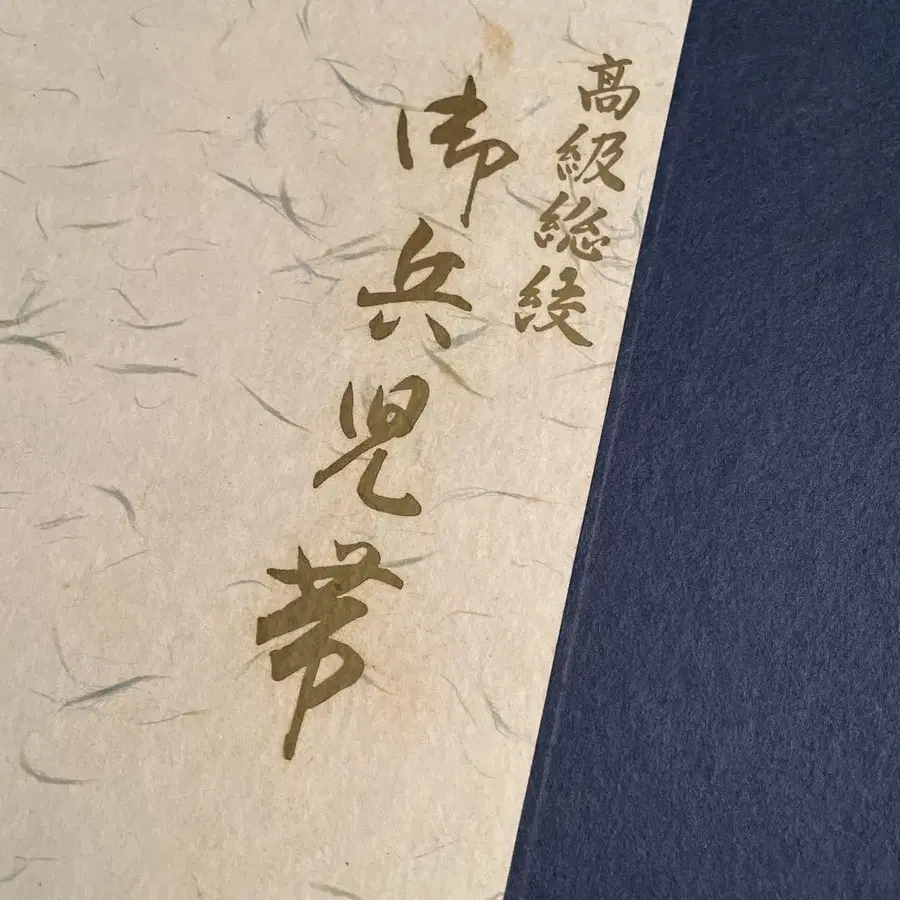 高級総絞
御兵児帯